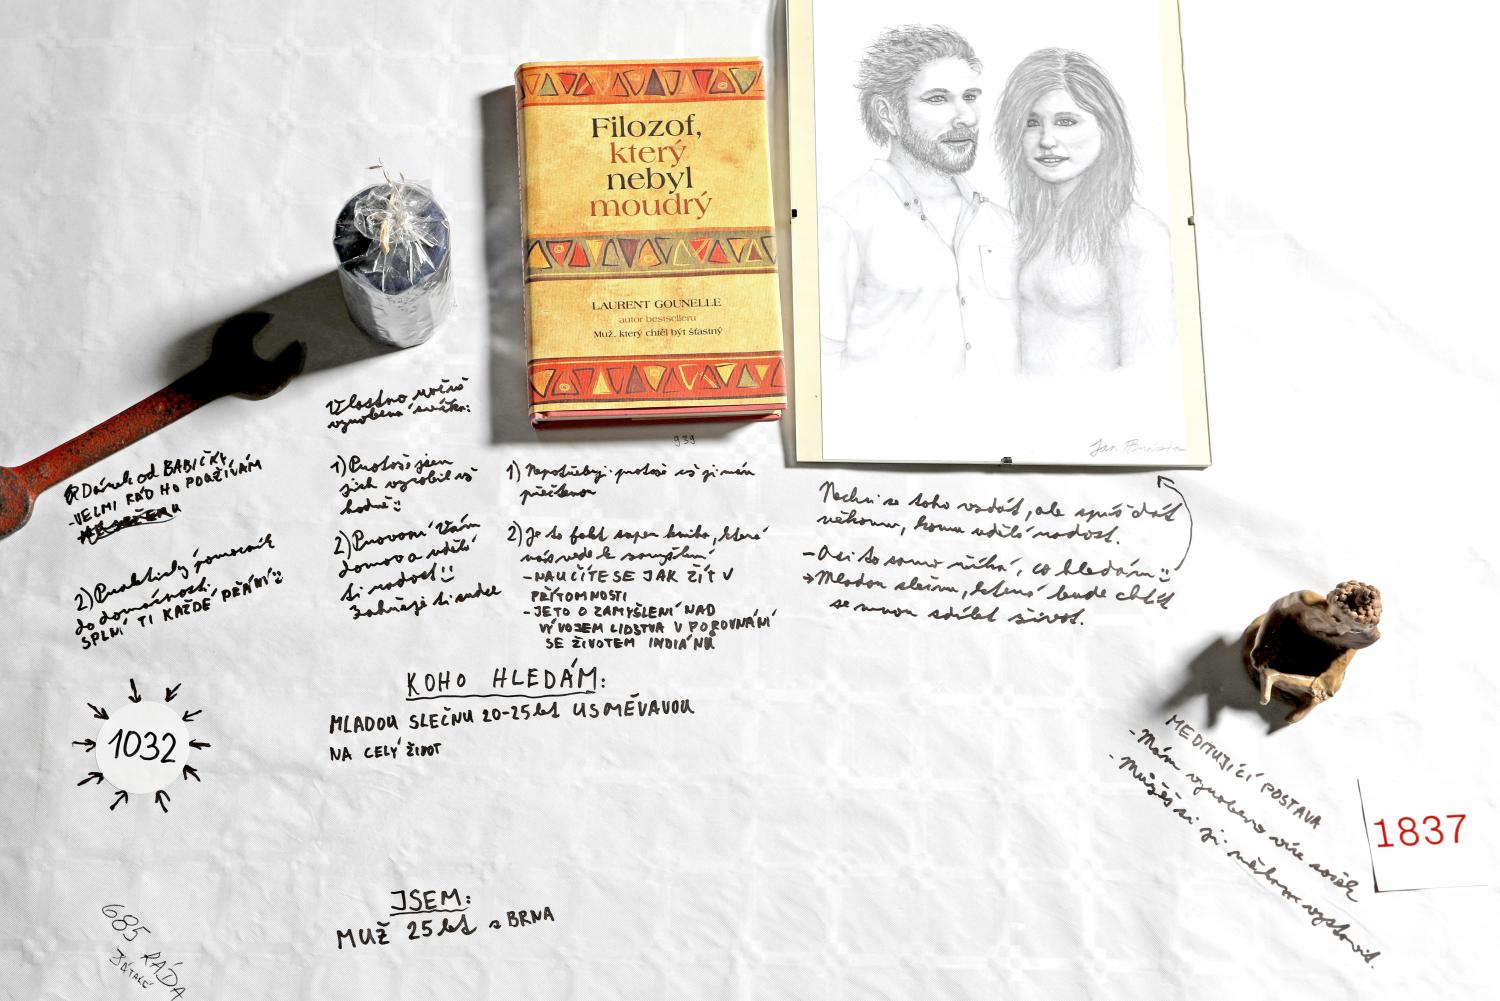 Filozof,
který
nebyl
moudrý
LAURENT GOUNELLE
autor bestselleru
Muž, který chtěl být šťastný
Jan
939
Vlastno
svíčka:
1) Protože jsem
jich vyrobil už
hodně
2) Provoní Vám
domov a udělá
ti radost!!
Zahřeje ti srdce
Dárek od BABIČKY
-VELMI RÁD HO POUŽÍVÁM
2) Praktický pomocník
do domácnosti
SPLNÍ TI KAŽDÉ PŘÁNÍ
1) Nepotřebuji protože už ji mám
přečtenou
2) Je to fakt super kniha, která
nás vede k zamyšlení
- NAUČÍTE SE JAK ŽÍT V
PŘÍTOMNOSTI
- JE TO O ZAMYŠLENÍ NAD
VÝVOJEM LIDSTVA V POROVNÁNÍ
SE ŽIVOTEM INDIÁNŮ
Nechci se toho vzdát, ale spíš dát
někomu, komu udělá radost.
- Asi to samo říká, co hledám
→ Mladou slečnu, která bude chtít
se mnou sdílet život.
KOHO HLEDÁM:
MLADOU SLEČNU 20-25 let USMĚVAVOU
NA CELÝ ŽIVOT
1032
MEDITUJÍCÍ POSTAVA
- Mám vyrobeno více sošek
- Můžeš si ji někam vystavit.
1837
JSEM:
MUŽ 25 let z BRNA
685 RÁDA